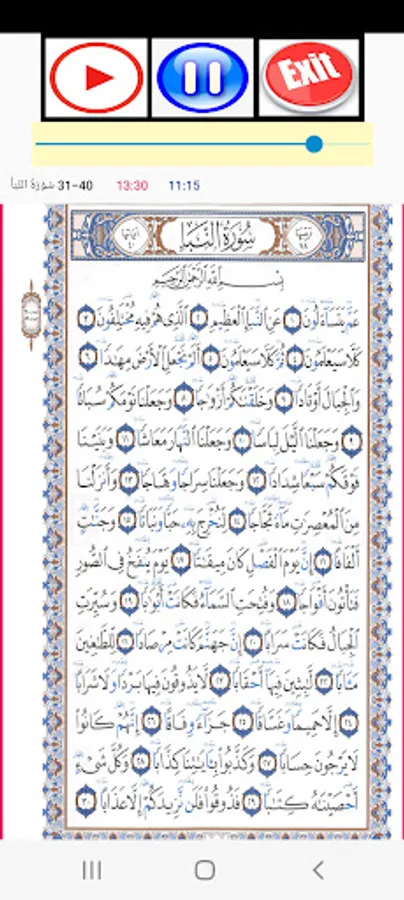 Exit
سورة النبأ 31-40 13:30 11:15
ترتيبها ٧٨ سُورَةُ النَّبَإِ آياتها ٤٠
بِسْمِ ٱللَّهِ ٱلرَّحْمَٰنِ ٱلرَّحِيمِ
عَمَّ يَتَسَآءَلُونَ ١ عَنِ ٱلنَّبَإِ ٱلْعَظِيمِ ٢ ٱلَّذِى هُمْ فِيهِ مُخْتَلِفُونَ ٣
كَلَّا سَيَعْلَمُونَ ٤ ثُمَّ كَلَّا سَيَعْلَمُونَ ٥ أَلَمْ نَجْعَلِ ٱلْأَرْضَ مِهَٰدًا ٦
وَٱلْجِبَالَ أَوْتَادًا ٧ وَخَلَقْنَٰكُمْ أَزْوَٰجًا ٨ وَجَعَلْنَا نَوْمَكُمْ سُبَاتًا
٩ وَجَعَلْنَا ٱلَّيْلَ لِبَاسًا ١٠ وَجَعَلْنَا ٱلنَّهَارَ مَعَاشًا ١١ وَبَنَيْنَا
فَوْقَكُمْ سَبْعًا شِدَادًا ١٢ وَجَعَلْنَا سِرَاجًا وَهَّاجًا ١٣ وَأَنزَلْنَا
مِنَ ٱلْمُعْصِرَٰتِ مَآءً ثَجَّاجًا ١٤ لِّنُخْرِجَ بِهِۦ حَبًّا وَنَبَاتًا ١٥ وَجَنَّٰتٍ
أَلْفَافًا ١٦ إِنَّ يَوْمَ ٱلْفَصْلِ كَانَ مِيقَٰتًا ١٧ يَوْمَ يُنفَخُ فِى ٱلصُّورِ
فَتَأْتُونَ أَفْوَاجًا ١٨ وَفُتِحَتِ ٱلسَّمَآءُ فَكَانَتْ أَبْوَٰبًا ١٩ وَسُيِّرَتِ
ٱلْجِبَالُ فَكَانَتْ سَرَابًا ٢٠ إِنَّ جَهَنَّمَ كَانَتْ مِرْصَادًا ٢١ لِّلطَّٰغِينَ
مَـَٔابًا ٢٢ لَّٰبِثِينَ فِيهَآ أَحْقَابًا ٢٣ لَّا يَذُوقُونَ فِيهَا بَرْدًا وَلَا شَرَابًا
٢٤ إِلَّا حَمِيمًا وَغَسَّاقًا ٢٥ جَزَآءً وِفَاقًا ٢٦ إِنَّهُمْ كَانُوا۟
لَا يَرْجُونَ حِسَابًا ٢٧ وَكَذَّبُوا۟ بِـَٔايَٰتِنَا كِذَّابًا ٢٨ وَكُلَّ شَىْءٍ
أَحْصَيْنَٰهُ كِتَٰبًا ٢٩ فَذُوقُوا۟ فَلَن نَّزِيدَكُمْ إِلَّا عَذَابًا ٣٠